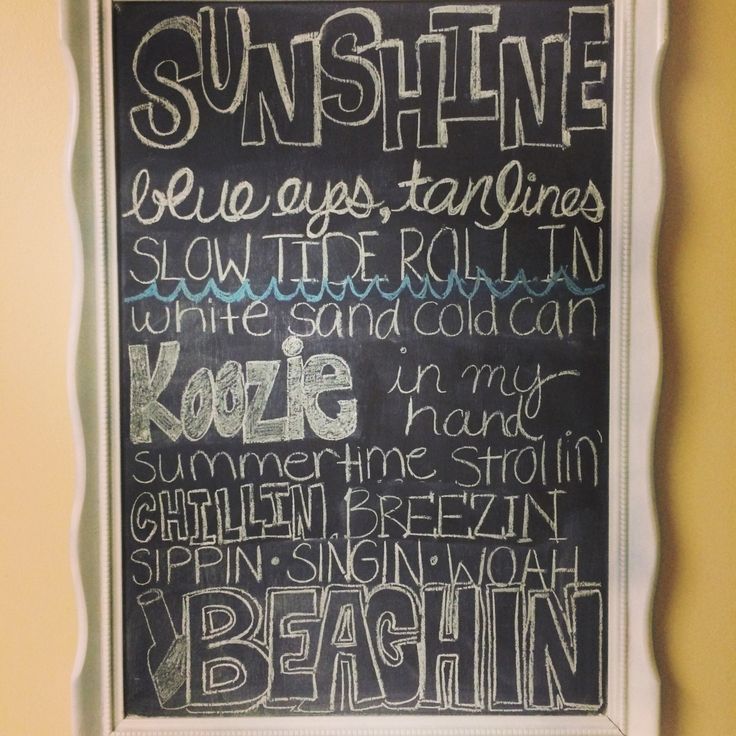 SUNSHINE
blue eyes, tanlines
SLOW TIDE ROLL IN
white sand cold can
Koozie in my hand
summertime strollin'
CHILLIN, BREEZIN
SIPPIN • SINGIN • WOAH
BEACHIN